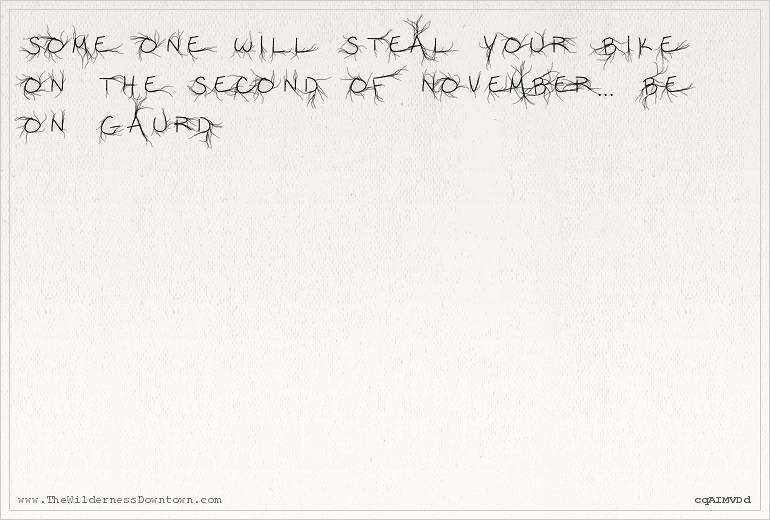 SOME ONE WILL STEAL YOUR BIKE
ON THE SECOND OF NOVEMBER... BE
ON GAURD
www.TheWildernessDowntown.com
cqAIMVDd